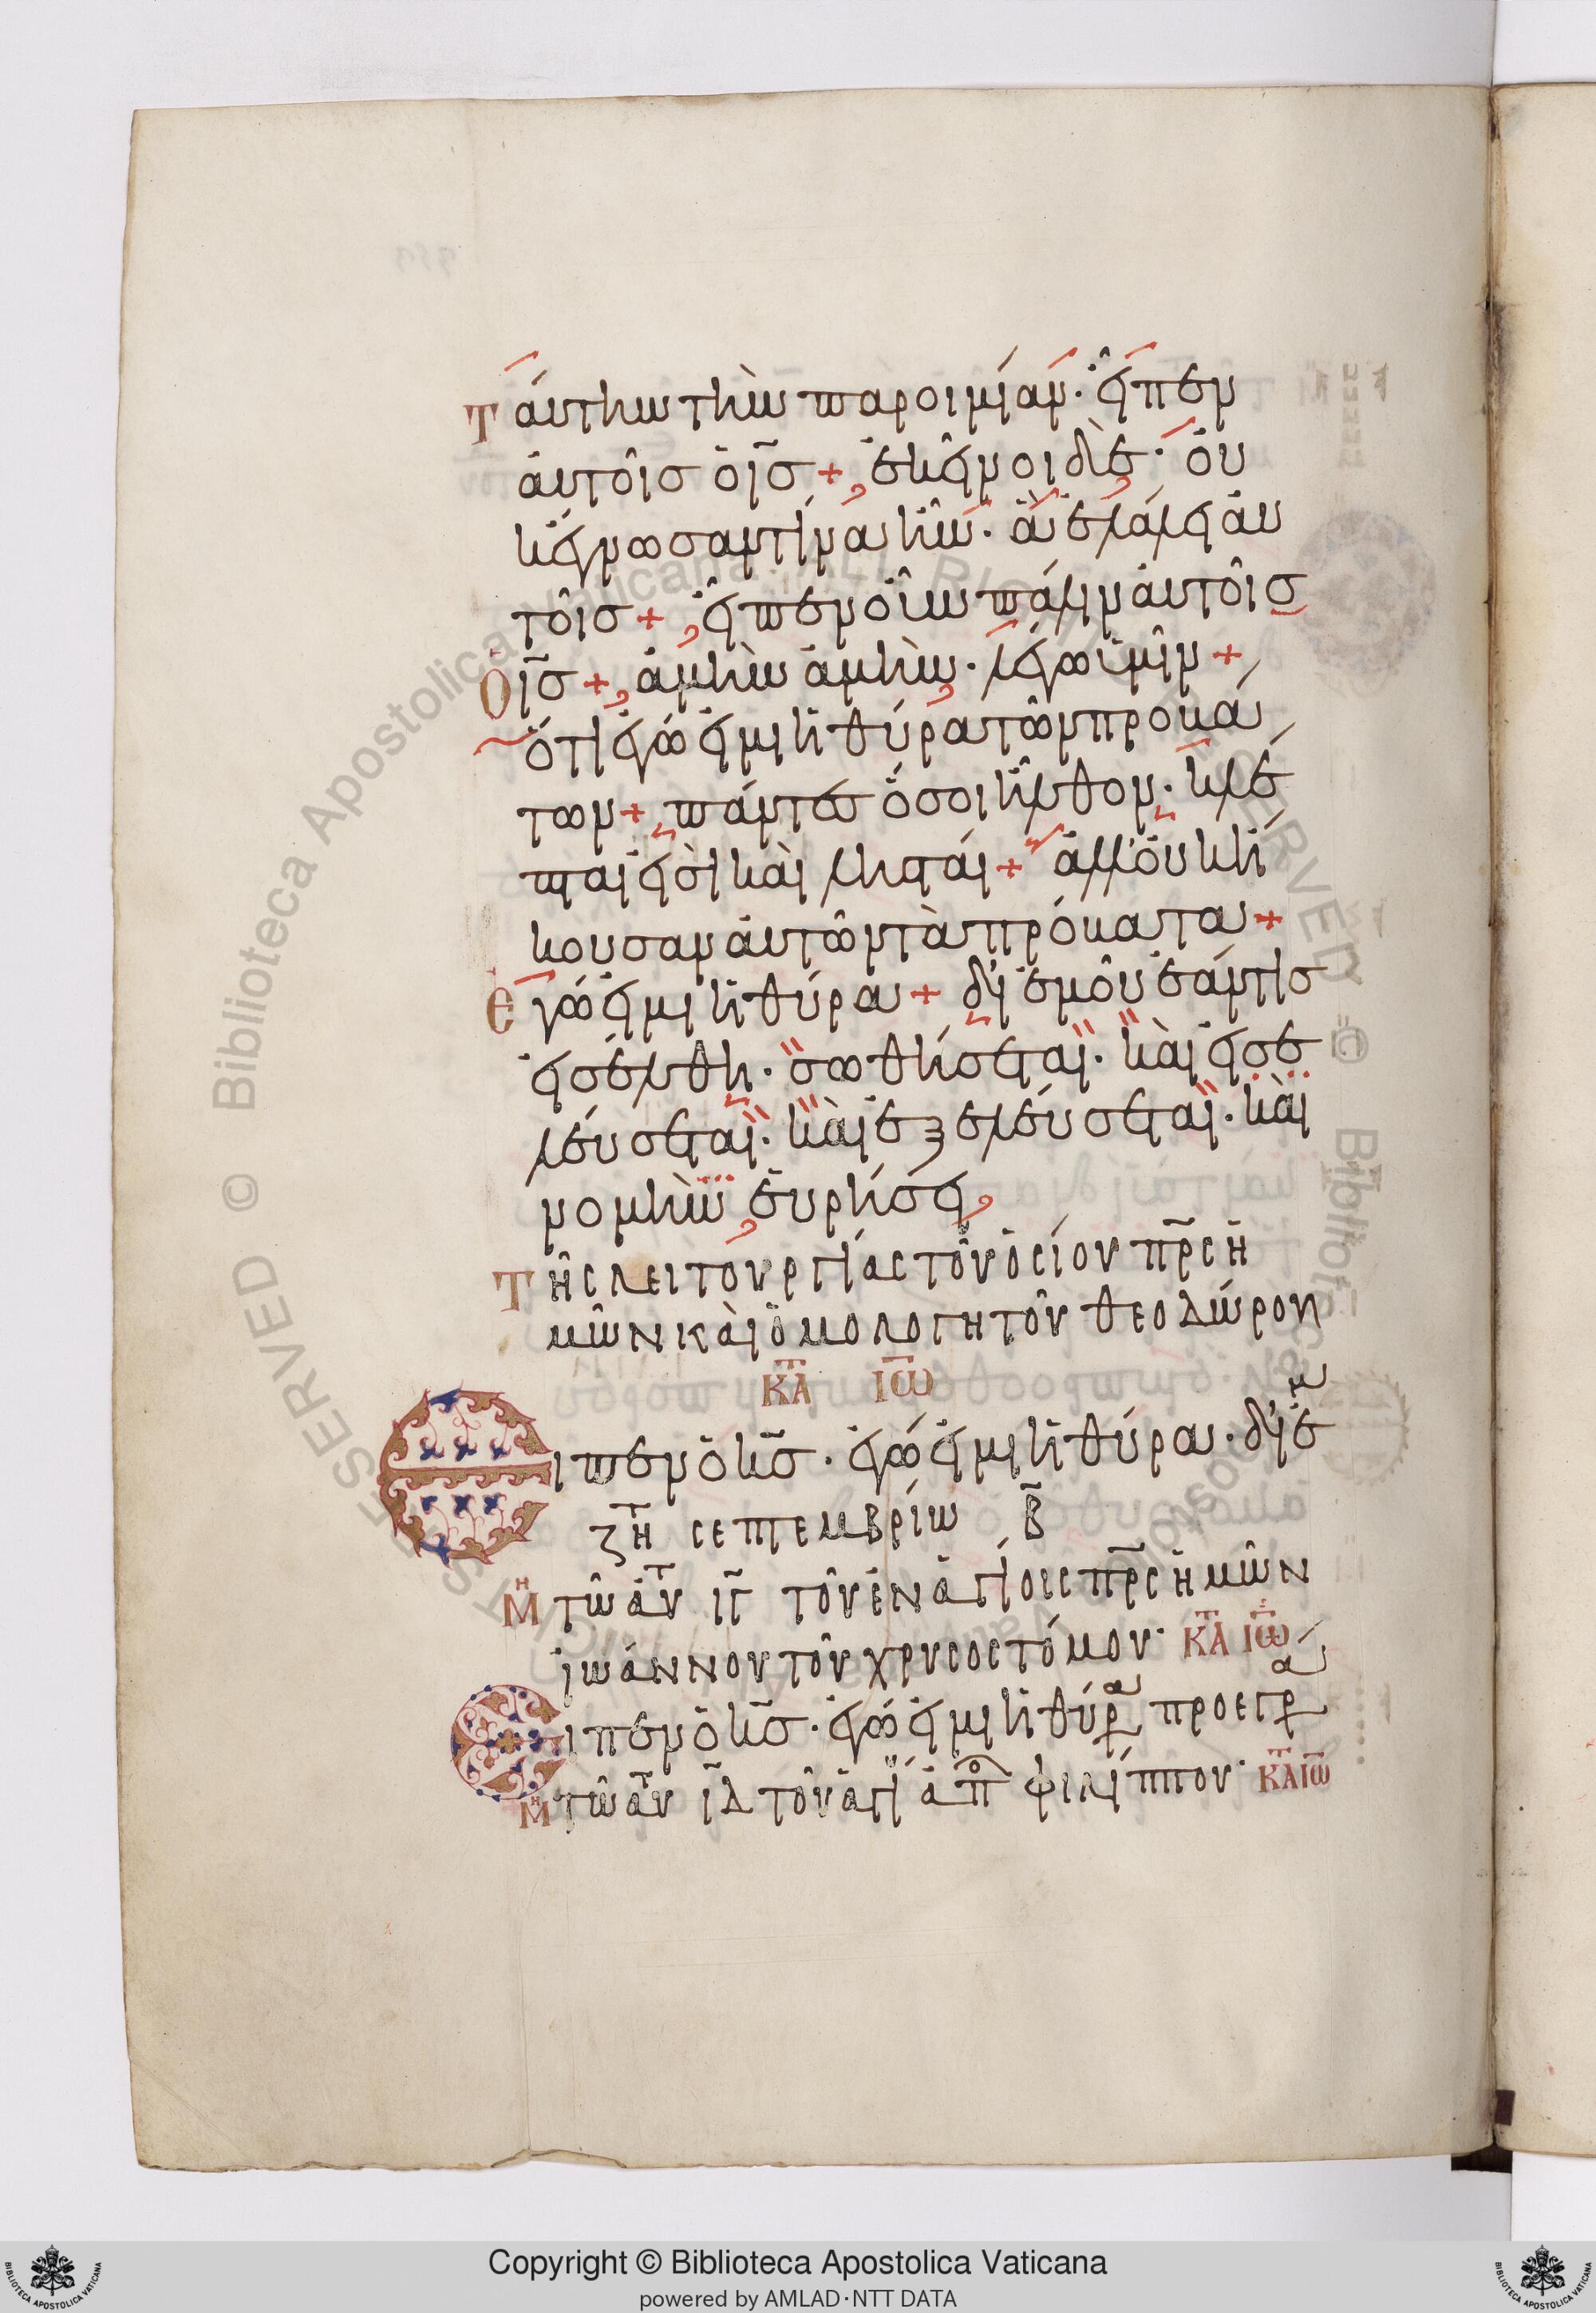 Ταύτην τὴν παροιμίαν· εἶπεν
αὐτοῖς ὁ ις̃ + ἐκεῖνοι δὲ· οὐ
κ ἔγνωσαν τίνα ἦν· ἃ ἐλάλει αὐ
τοῖς + εἶπεν οὖν πάλιν αὐτοῖς
Ὁ ις̃ + ἀμὴν ἀμὴν· λέγω ὑμῖν +
ὅτι ἐγώ εἰμι ἡ θύρα τῶν προβά
των + πάντες ὅσοι ἦλθον· κλέ
πται εἰσὶ καὶ λησταί + ἀλλ' οὐκ ἤ
κουσαν αὐτῶν τὰ πρόβατα +
Ἐγώ εἰμι ἡ θύρα + δι' ἐμοῦ ἐάν τις
εἰσέλθη· σωθήσεται· καὶ εἰσε
λεύσεται· καὶ ἐξελεύσεται· καὶ
νομὴν εὑρήσει
Τῆς λειτουργίας τοῦ ὁσίου πρ̃ς ἡ
μῶν καὶ ὁμολογητοῦ θεοδώρου
ΚΤΑ ΙΩ
Εἶπεν ὁ κς̃· ἐγώ εἰμι ἡ θύρα· δι' ἐμ
ζτη σεπτεμβρίω β̃
Μη τῶ αυτ ιγ̃ τοῦ ἐν ἁγίοις πρ̃ς ἡμῶν
ἰωάννου τοῦ χρυσοστόμου· ΚΤΑ ΙΩ
Εἶπεν ὁ κς̃· ἐγώ εἰμι ἡ θύρα προεγρα
Μη τῶ αυτ ιδ τοῦ ἁγί ἀπο φιλίππου· ΚΤΑ ΙΩ
Copyright © Biblioteca Apostolica Vaticana
powered by AMLAD·NTT DATA